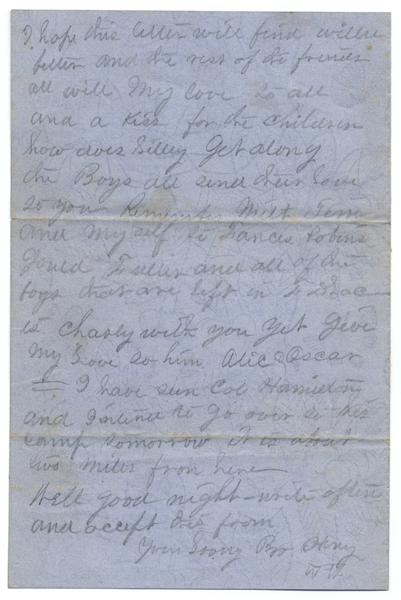 I hope this letter will find willie
better and the rest of the friends
all well My love to all
and a Kiss for the children
how does Libby Get along
the Boys all send their love
to you Remember Milt Tom
and My self to Frances Robins
Gould Fuller and all of the
boys that are left in F
is Charly with you yet Give
My Love to him Alic & Oscar
I have seen Col Hamilton
and I intend to go over to his
camp tomorrow It is about
two miles from here
Well good night write often
and accept this from
Your loving Bro